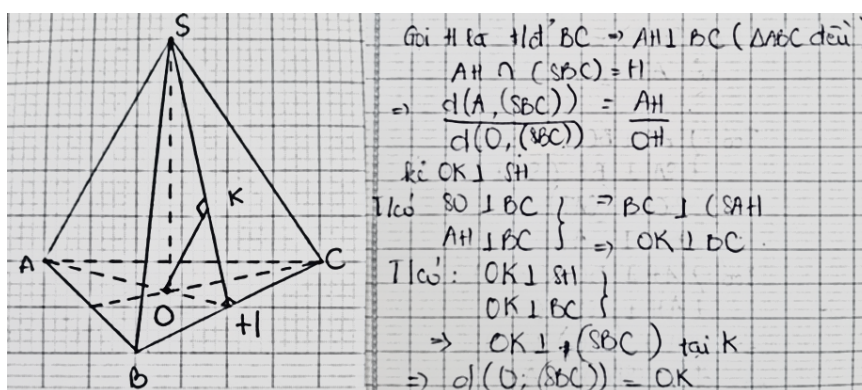 S
K
A
C
O
H
B
Gọi H là tđ' BC => AH ⊥ BC (ΔABC đều
AH ∩ (SBC) = H
=> d(A, (SBC)) / d(O, (SBC)) = AH / OH
kẻ OK ⊥ SH
T/có SO ⊥ BC } => BC ⊥ (SAH
AH ⊥ BC } => OK ⊥ BC
T/có: OK ⊥ SH }
OK ⊥ BC }
=> OK ⊥ (SBC) tại K
=> d(O; (SBC)) = OK